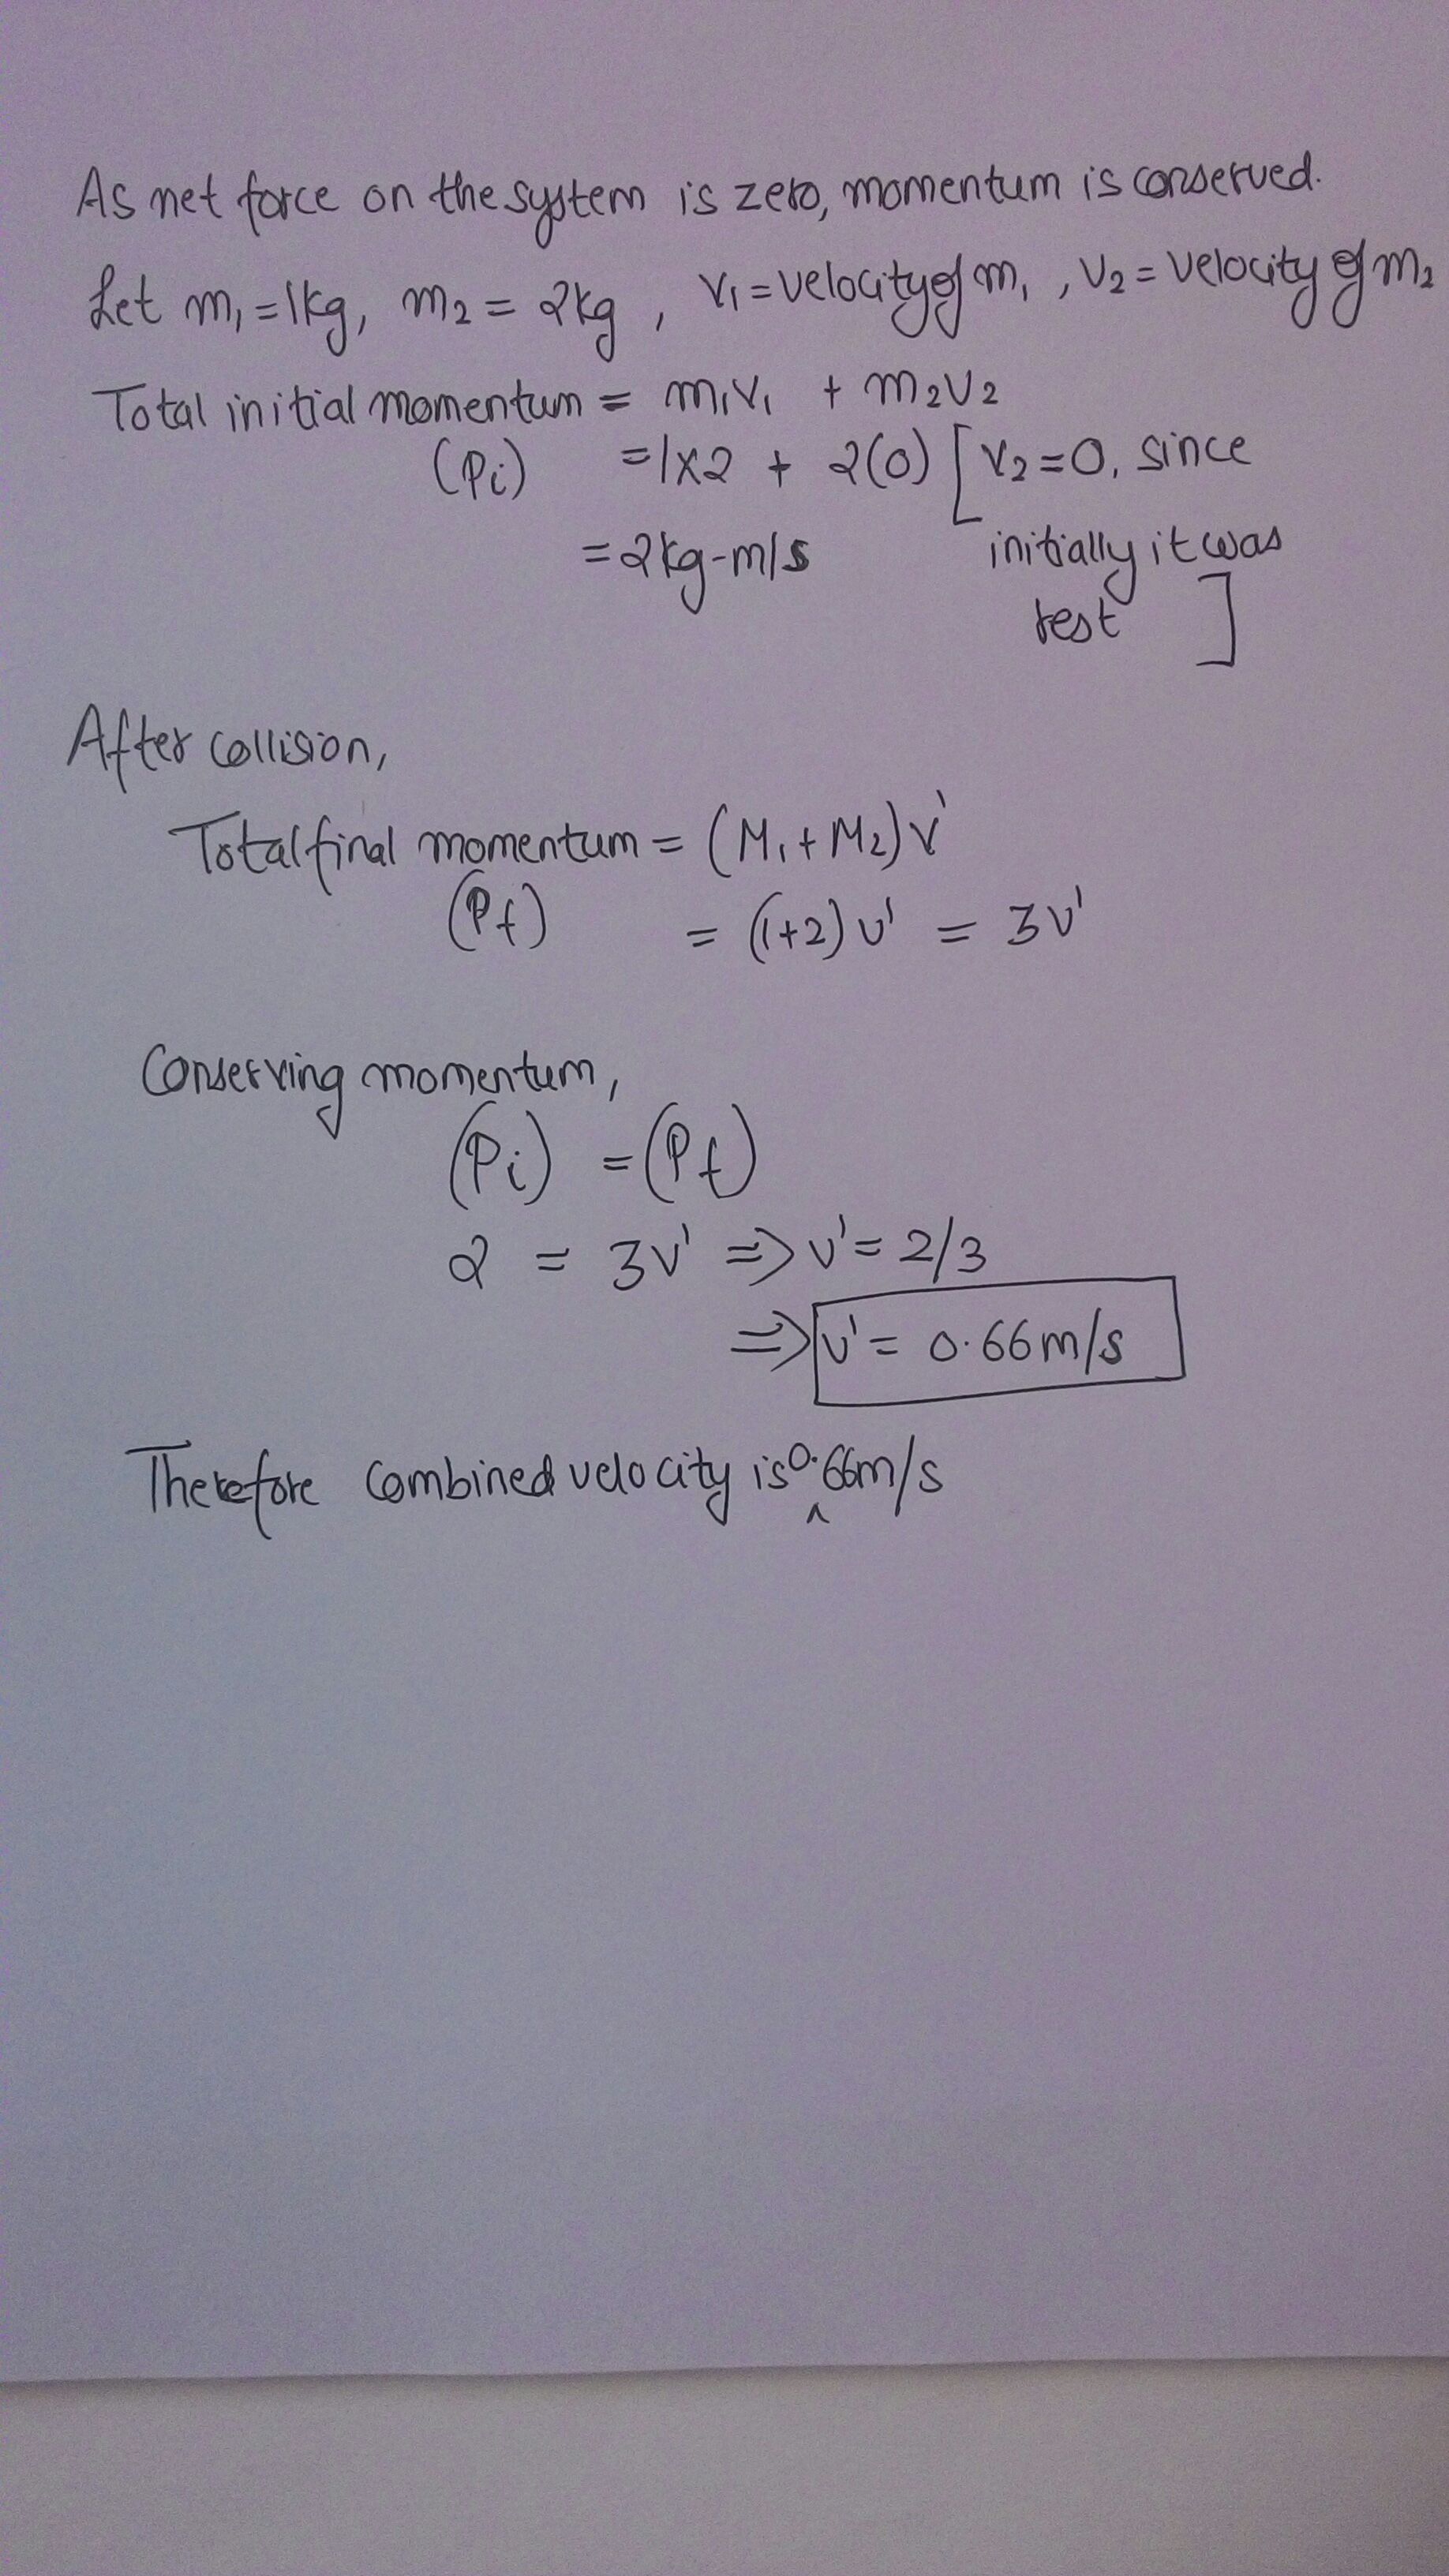 As net force on the system is zero, momentum is conserved.
Let m₁ = 1kg, m₂ = 2kg, v₁ = velocity of m₁, v₂ = velocity of m₂
Total initial momentum = m₁v₁ + m₂v₂
(Pi) = 1×2 + 2(0) [v₂ = 0, since
= 2kg-m/s initially it was
rest]
After collision,
Total final momentum = (M₁+M₂)v'
(Pf) = (1+2)v' = 3v'
Conserving momentum,
(Pi) = (Pf)
2 = 3v' => v' = 2/3
=> v' = 0.66m/s
Therefore combined velocity is 0.66m/s